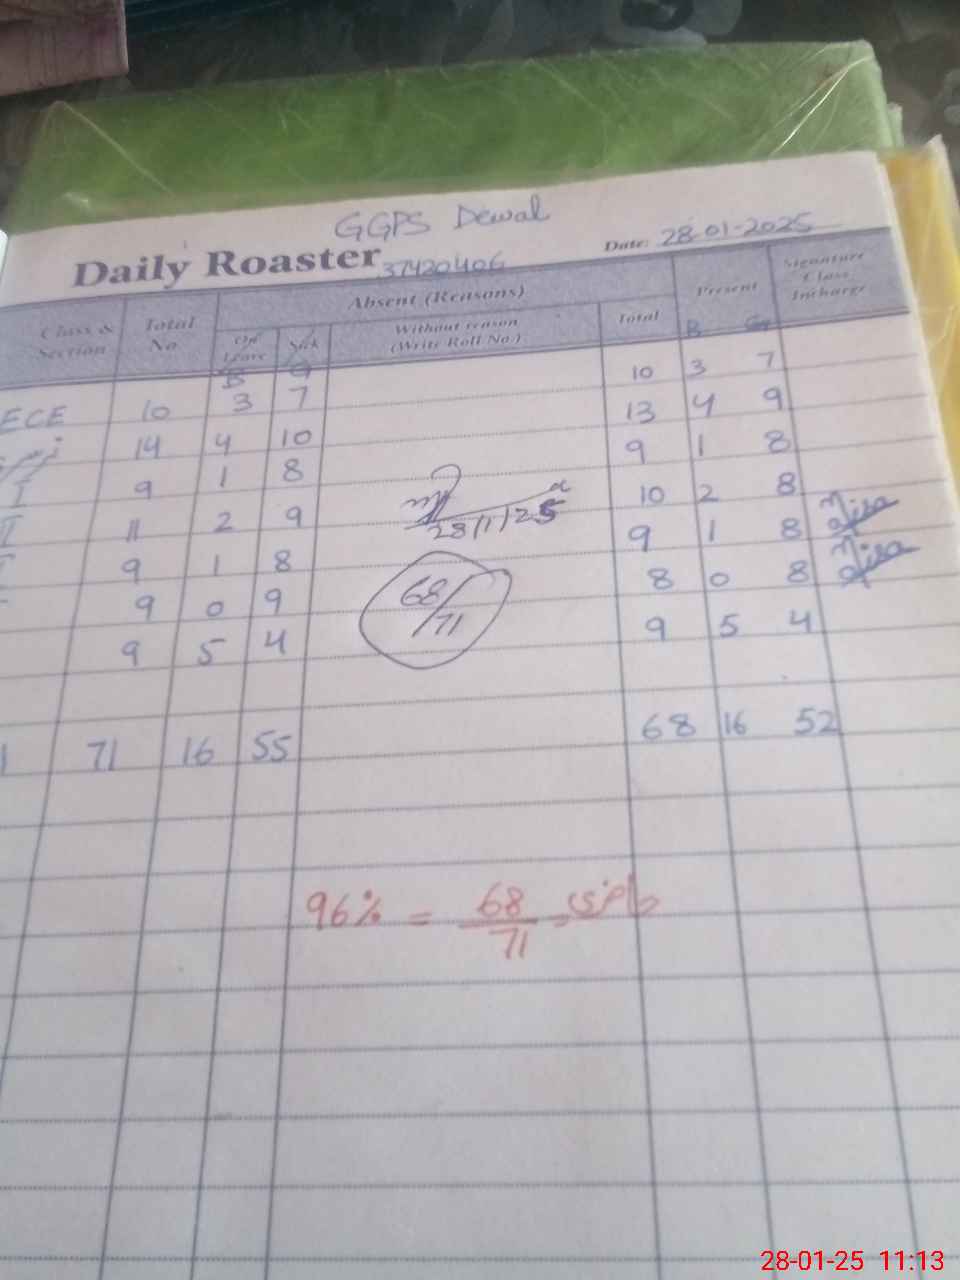 GGPS Dewal
Daily Roaster 37420406 Date: 28-01-2025
Class & Section Total No. Absent (Reasons) Present Signature Class Incharge
On Leave Sick Without reason (Write Roll No.) Total B G
B G
ECE 10 3 7 10 3 7
14 4 10 13 4 9
I 9 1 8 9 1 8
II 11 2 9 10 2 8
9 1 8 9 1 8
9 0 9 8 0 8
9 5 4 9 5 4
28/1/25
68/71
71 16 55 68 16 52
96% = 68/71
28-01-25 11:13